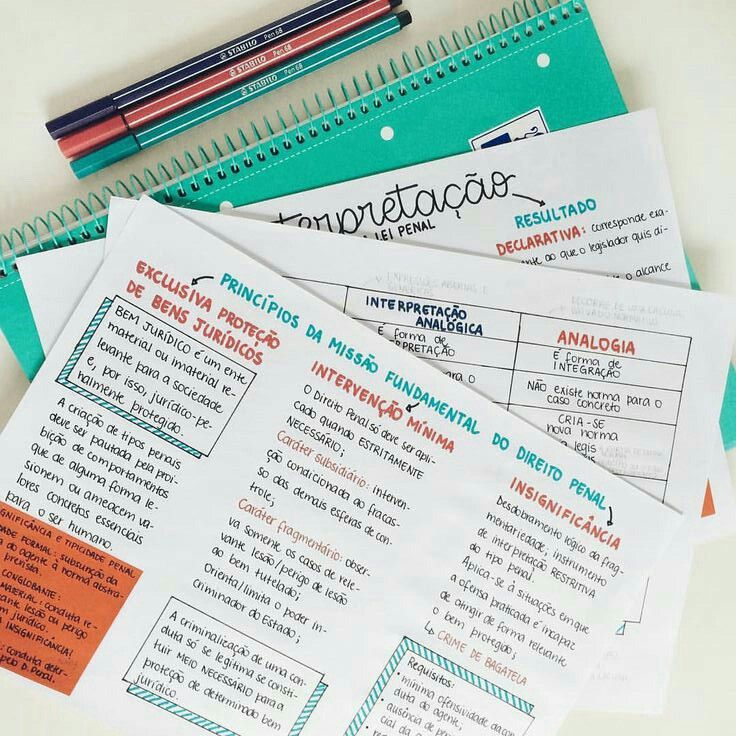 STABILO Pen 68
STABILO Pen 68
STABILO Pen 68
interpretação
LEI PENAL
RESULTADO
DECLARATIVA: corresponde exa-
ao que o legislador quis di-
o alcance
INTERPRETAÇÃO
ANALÓGICA
É forma de
INTERPRETAÇÃO
para o
ANALOGIA
É forma de
INTEGRAÇÃO
NÃO existe norma para o
caso concreto
CRIA-SE
nova norma
legis
PRINCÍPIOS DA MISSÃO FUNDAMENTAL DO DIREITO PENAL
EXCLUSIVA PROTEÇÃO
DE BENS JURÍDICOS
BEM JURÍDICO é um ente
material ou imaterial re-
levante para a sociedade
e, por isso, jurídico-pe-
nalmente protegido.
A criação de tipos penais
deve ser pautada pela proi-
bição de comportamentos
que de alguma forma le-
sionem ou ameacem va-
lores concretos essenciais
para o ser humano.
INSIGNIFICÂNCIA E TIPICIDADE PENAL
FORMAL: subsunção da
do agente à norma abstra-
prevista.
CONGLOBANTE:
MATERIAL: conduta re-
vante lesão ou perigo
jurídico.
INSIGNIFICÂNCIA!
conduta deter-
pelo D. Penal.
INTERVENÇÃO MÍNIMA
O Direito Penal só deve ser apli-
cado quando ESTRITAMENTE
NECESSÁRIO;
Caráter subsidiário: interven-
ção condicionada ao fracas-
so das demais esferas de con-
trole;
Caráter fragmentário: obser-
va somente os casos de rele-
vante lesão/perigo de lesão
ao bem tutelado;
Orienta/limita o poder in-
criminador do Estado;
A criminalização de uma con-
duta só se legitima se consti-
tuir MEIO NECESSÁRIO para a
proteção de determinado bem
jurídico.
INSIGNIFICÂNCIA
Desdobramento lógico da frag-
mentariedade; instrumento
de interpretação RESTRITIVA
do tipo penal.
Aplica-se à situações em que
a ofensa praticada é incapaz
de atingir de forma relevante
o bem protegido;
↳ CRIME DE BAGATELA
Requisitos:
• mínima ofensividade da con-
duta do agente;
• ausência de peri-
cial da